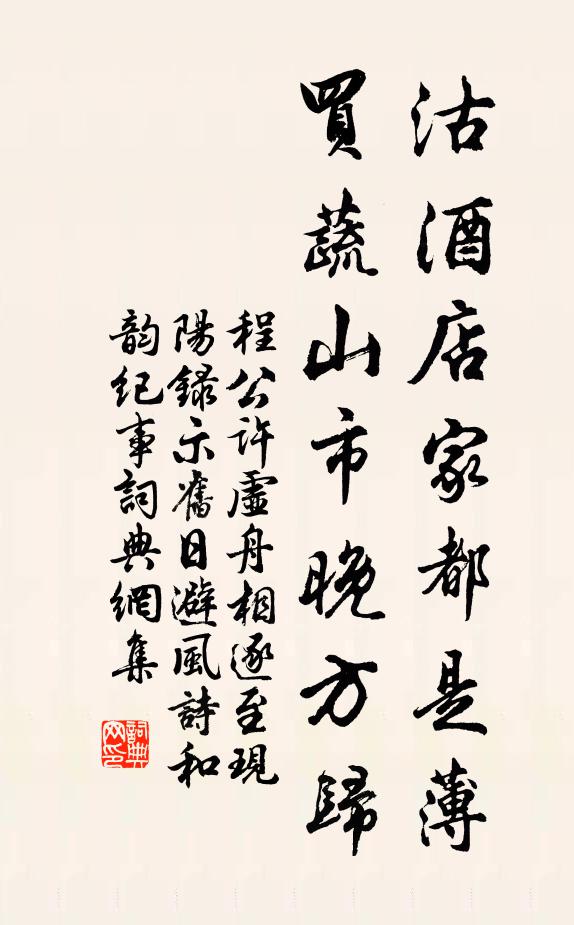 沽酒店家都是薄
買蔬山市晚方歸
程公許虛舟相逐至現
陽録示舊日避風詩和
韵紀事詞典網集
詞典
网印